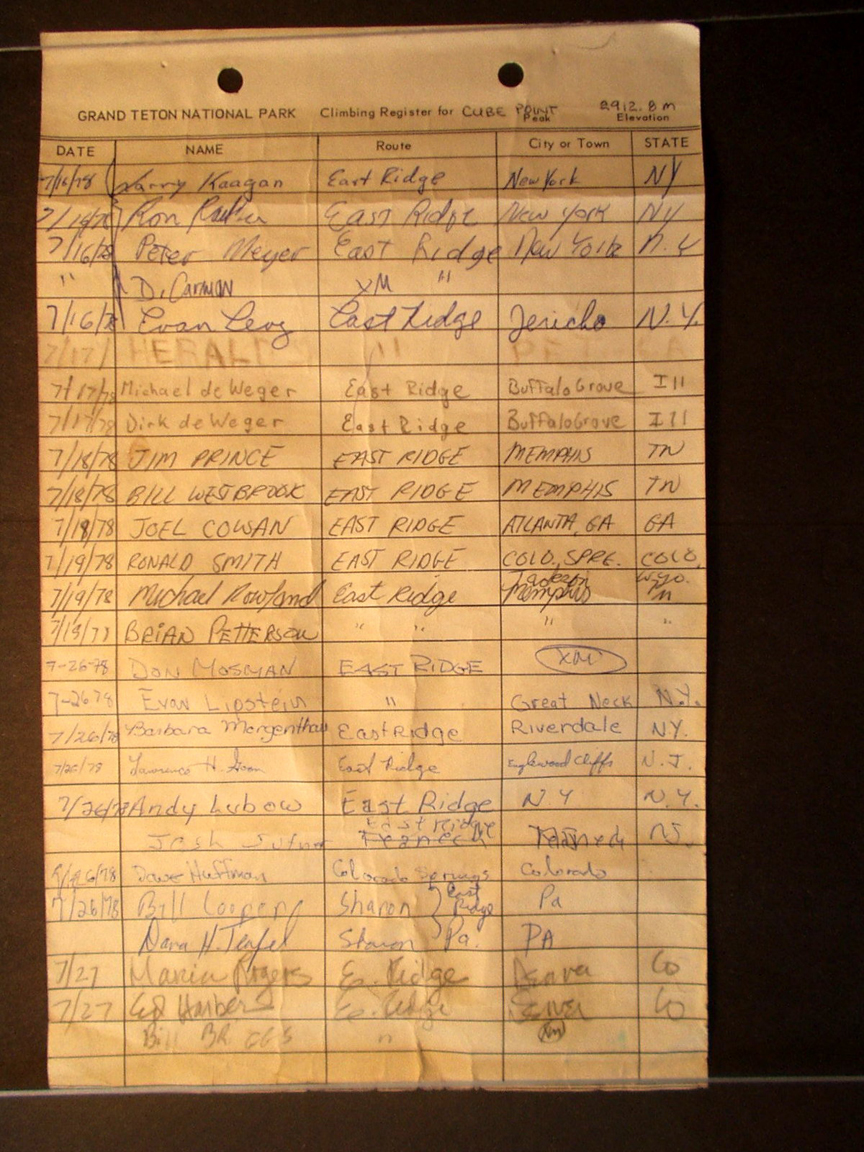 GRAND TETON NATIONAL PARK Climbing Register for CUBE POINT 2912.8 m
Peak Elevation
DATE NAME Route City or Town STATE
7/16/78 Larry Kaagan East Ridge New York NY
7/16/78 Ron East Ridge New York NY
7/16/78 Peter Meyer East Ridge New York N.Y.
" D. Carman XM "
7/16/78 Evan Levy East Ridge Jericho N.Y.
7/17/ HERALD "
7/17/78 Michael de Weger East Ridge Buffalo Grove Ill
7/17/78 Dirk de Weger East Ridge Buffalo Grove Ill
7/18/78 JIM PRINCE EAST RIDGE MEMPHIS TN
7/18/78 BILL WESTBROOK EAST RIDGE MEMPHIS TN
7/18/78 JOEL COWAN EAST RIDGE ATLANTA, GA GA
7/19/78 RONALD SMITH EAST RIDGE COLO. SPRG. COLO.
Jackson Wyo.
7/19/78 Michael Rowland East Ridge Memphis Tn
7/19/77 BRIAN PETTERSON " " " "
7-26-78 DON MOSMAN EAST RIDGE XM
7-26-78 Evan Lipstein " Great Neck N.Y.
7/26/78 Barbara Morgenthau East Ridge Riverdale NY.
7/26/78 Lawrence H. East Ridge Englewood Cliffs N.J.
7/26/78 Andy Lubow East Ridge N Y N.Y.
East Ridge
Josh Teaneck Teaneck NJ.
7/26/78 Dave Huffman Colorado Springs Colorado
7/26/78 Bill Cooper Sharon East Ridge Pa
Dana H. Teufel Sharon Pa. PA
7/27 Maria Rogers E. Ridge Denver CO
7/27 Ed Harber E. Ridge Denver CO
Bill BRIGGS " XM